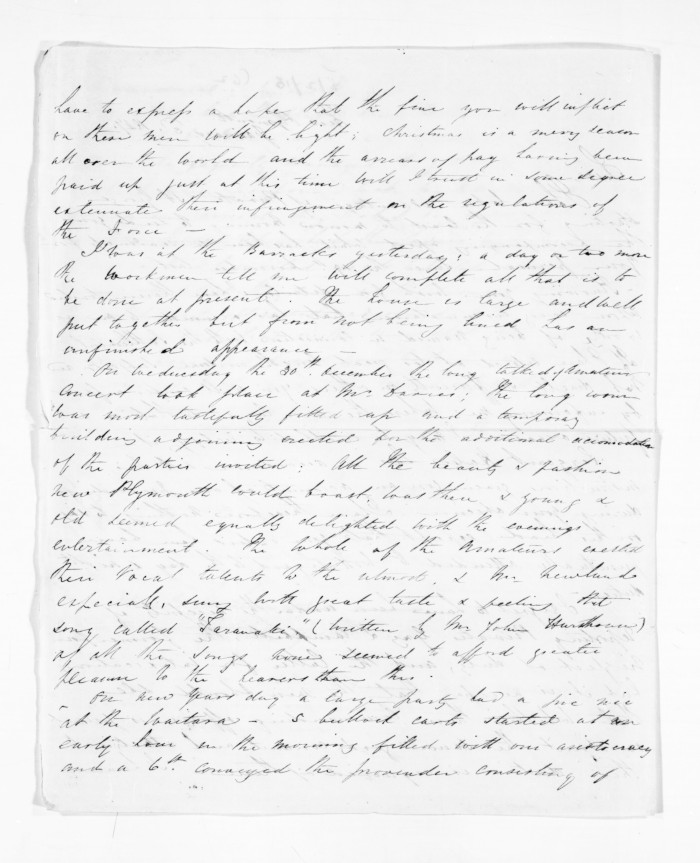 have to express a hope that the fine you will inflict
on these men will be light; Christmas is a merry season
all over the world and the arrears of pay having been
paid up just at this time will I trust in some degree
extenuate their infringement on the regulations of
the Force —
I was at the Barracks yesterday; a day or two more
the workmen tell me will complete all that is to
be done at present. The house is large and well
put together but from not being lined has an
unfinished appearance —
On Wednesday the 20th December the long talked of amateur
concert took place at Mr Davies; the long room
was most tastefully fitted up and a temporary
building adjoining erected for the additional accomodation
of the parties invited; All the beauty & fashion
New Plymouth could boast, was there & young &
old seemed equally delighted with the evenings
entertainment. The whole of the Amateurs exerted
their vocal talents to the utmost, & Mr Newland
especially, sung with great taste & feeling that
song called "Taranaki" (written by Mr John Hursthouse)
of all the songs none seemed to afford greater
pleasure to the hearers than this.
On new years day a large party had a pic nic
at the Waitara — 5 bullock carts started at an
early hour in the morning filled with our aristocracy
and a 6th conveyed the provender consisting of